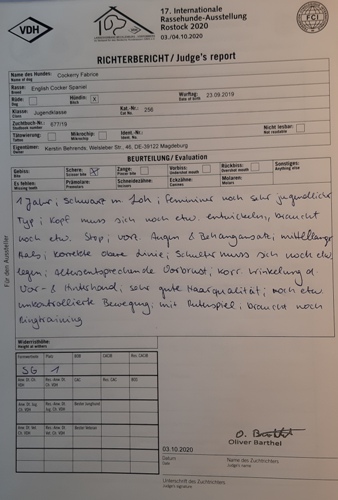 VDH
17. Internationale
Rassehunde-Ausstellung
Rostock 2020
03./04.10.2020
FCI
RICHTERBERICHT / Judge's report
Name des Hundes: Cockerny Fabrice
Name of dog
Rasse: English Cocker Spaniel
Breed
Rüde: Hündin: X Wurftag: 23.09.2019
Dog Bitch Date of birth
Klasse: Jugendklasse Kat.-Nr.: 256
Class Cat. No.
Zuchtbuch-Nr.: 677/19
Studbook number
Tätowierung: Mikrochip: Ident.-Nr.: Nicht lesbar:
Tattoo Microchip Ident. No. Not readable
Eigentümer: Kerstin Behrends, Welsleber St. 46, DE-39122 Magdeburg
Owner
BEURTEILUNG / Evaluation
Gebiss: Schere: X Zange: Vorbiss: Rückbiss: Sonstiges:
Bite Scissor bite Pincer bite Undershot mouth Overshot mouth Anything else
Es fehlen: Prämolare: Schneidezähne: Eckzähne: Molaren:
Missing teeth Premolars Incisors Canines Molars
1 Jahr; schwarz m. Loh; feminine noch sehr jugendlicher
Typ; Kopf muss sich noch etw. entwickeln, braucht
noch etw. Stop; vorz. Augen & Behangansatz; mittellanger
Hals; korrekte obere Linie; Schulter muss sich noch etw.
legen; altersentsprechende Vorbrust; korr. Winkelung d.
Vor- & Hinterhand; sehr gute Haarqualität; noch etw.
unkontrollierte Bewegung; mit Rutenspiel; braucht noch
Ringtraining
Für den Aussteller
Widerristhöhe:
Height at withers
Formwertnote Platz BOB CACIB Res. CACIB
SG 1
CAC Res. CAC BOS
Bester Junghund
Bester Veteran
O. Barthel
Oliver Barthel
03.10.2020
Datum Name des Zuchtrichters
Date Judge's name
Unterschrift des Zuchtrichters
Judge's signature